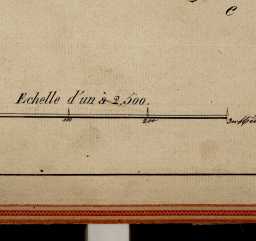 e
Echelle d'un à 2,500.
100 200 300